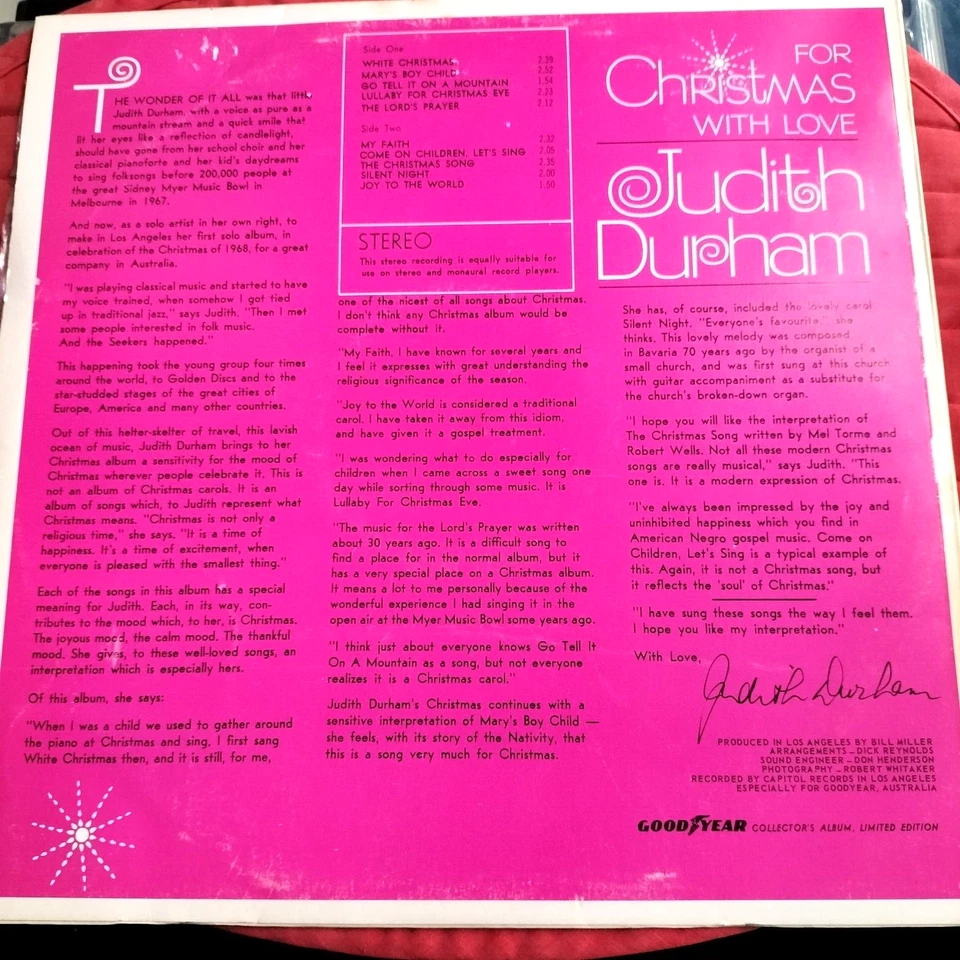 THE WONDER OF IT ALL was that little
Judith Durham, with a voice as pure as a
mountain stream and a quick smile that
lit her eyes like a reflection of candlelight,
should have gone from her school choir and her
classical pianoforte and her kid's daydreams
to sing folksongs before 200,000 people at
the great Sidney Myer Music Bowl in
Melbourne in 1967.
And now, as a solo artist in her own right, to
make in Los Angeles her first solo album, in
celebration of the Christmas of 1968, for a great
company in Australia.
"I was playing classical music and started to have
my voice trained, when somehow I got tied
up in traditional jazz," says Judith. "Then I met
some people interested in folk music.
And the Seekers happened."
This happening took the young group four times
around the world, to Golden Discs and to the
star-studded stages of the great cities of
Europe, America and many other countries.
Out of this helter-skelter of travel, this lavish
ocean of music, Judith Durham brings to her
Christmas album a sensitivity for the mood of
Christmas wherever people celebrate it. This is
not an album of Christmas carols. It is an
album of songs which, to Judith represent what
Christmas means. "Christmas is not only a
religious time," she says. "It is a time of
happiness. It's a time of excitement, when
everyone is pleased with the smallest thing."
Each of the songs in this album has a special
meaning for Judith. Each, in its way, con-
tributes to the mood which, to her, is Christmas.
The joyous mood, the calm mood. The thankful
mood. She gives, to these well-loved songs, an
interpretation which is especially hers.
Of this album, she says:
"When I was a child we used to gather around
the piano at Christmas and sing, I first sang
White Christmas then, and it is still, for me,
Side One
WHITE CHRISTMAS 2.39
MARY'S BOY CHILD 2.52
GO TELL IT ON A MOUNTAIN 1.54
LULLABY FOR CHRISTMAS EVE 2.23
THE LORD'S PRAYER 2.12
Side Two
MY FAITH 2.32
COME ON CHILDREN, LET'S SING 2.05
THE CHRISTMAS SONG 2.35
SILENT NIGHT 2.00
JOY TO THE WORLD 1.50
STEREO
This stereo recording is equally suitable for
use on stereo and monaural record players.
one of the nicest of all songs about Christmas.
I don't think any Christmas album would be
complete without it.
"My Faith, I have known for several years and
I feel it expresses with great understanding the
religious significance of the season.
"Joy to the World is considered a traditional
carol. I have taken it away from this idiom,
and have given it a gospel treatment.
"I was wondering what to do especially for
children when I came across a sweet song one
day while sorting through some music. It is
Lullaby For Christmas Eve.
"The music for the Lord's Prayer was written
about 30 years ago. It is a difficult song to
find a place for in the normal album, but it
has a very special place on a Christmas album.
It means a lot to me personally because of the
wonderful experience I had singing it in the
open air at the Myer Music Bowl some years ago.
"I think just about everyone knows Go Tell It
On A Mountain as a song, but not everyone
realizes it is a Christmas carol."
Judith Durham's Christmas continues with a
sensitive interpretation of Mary's Boy Child —
she feels, with its story of the Nativity, that
this is a song very much for Christmas.
FOR
Christmas
WITH LOVE
Judith
Durham
She has, of course, included the lovely carol
Silent Night. "Everyone's favourite," she
thinks. This lovely melody was composed
in Bavaria 70 years ago by the organist of a
small church, and was first sung at this church
with guitar accompaniment as a substitute for
the church's broken-down organ.
"I hope you will like the interpretation of
The Christmas Song written by Mel Torme and
Robert Wells. Not all these modern Christmas
songs are really musical," says Judith. "This
one is. It is a modern expression of Christmas.
"I've always been impressed by the joy and
uninhibited happiness which you find in
American Negro gospel music. Come on
Children, Let's Sing is a typical example of
this. Again, it is not a Christmas song, but
it reflects the 'soul' of Christmas."
"I have sung these songs the way I feel them.
I hope you like my interpretation."
With Love,
Judith Durham
PRODUCED IN LOS ANGELES BY BILL MILLER
ARRANGEMENTS – DICK REYNOLDS
SOUND ENGINEER – DON HENDERSON
PHOTOGRAPHY – ROBERT WHITAKER
RECORDED BY CAPITOL RECORDS IN LOS ANGELES
ESPECIALLY FOR GOODYEAR, AUSTRALIA
GOODYEAR COLLECTOR'S ALBUM, LIMITED EDITION